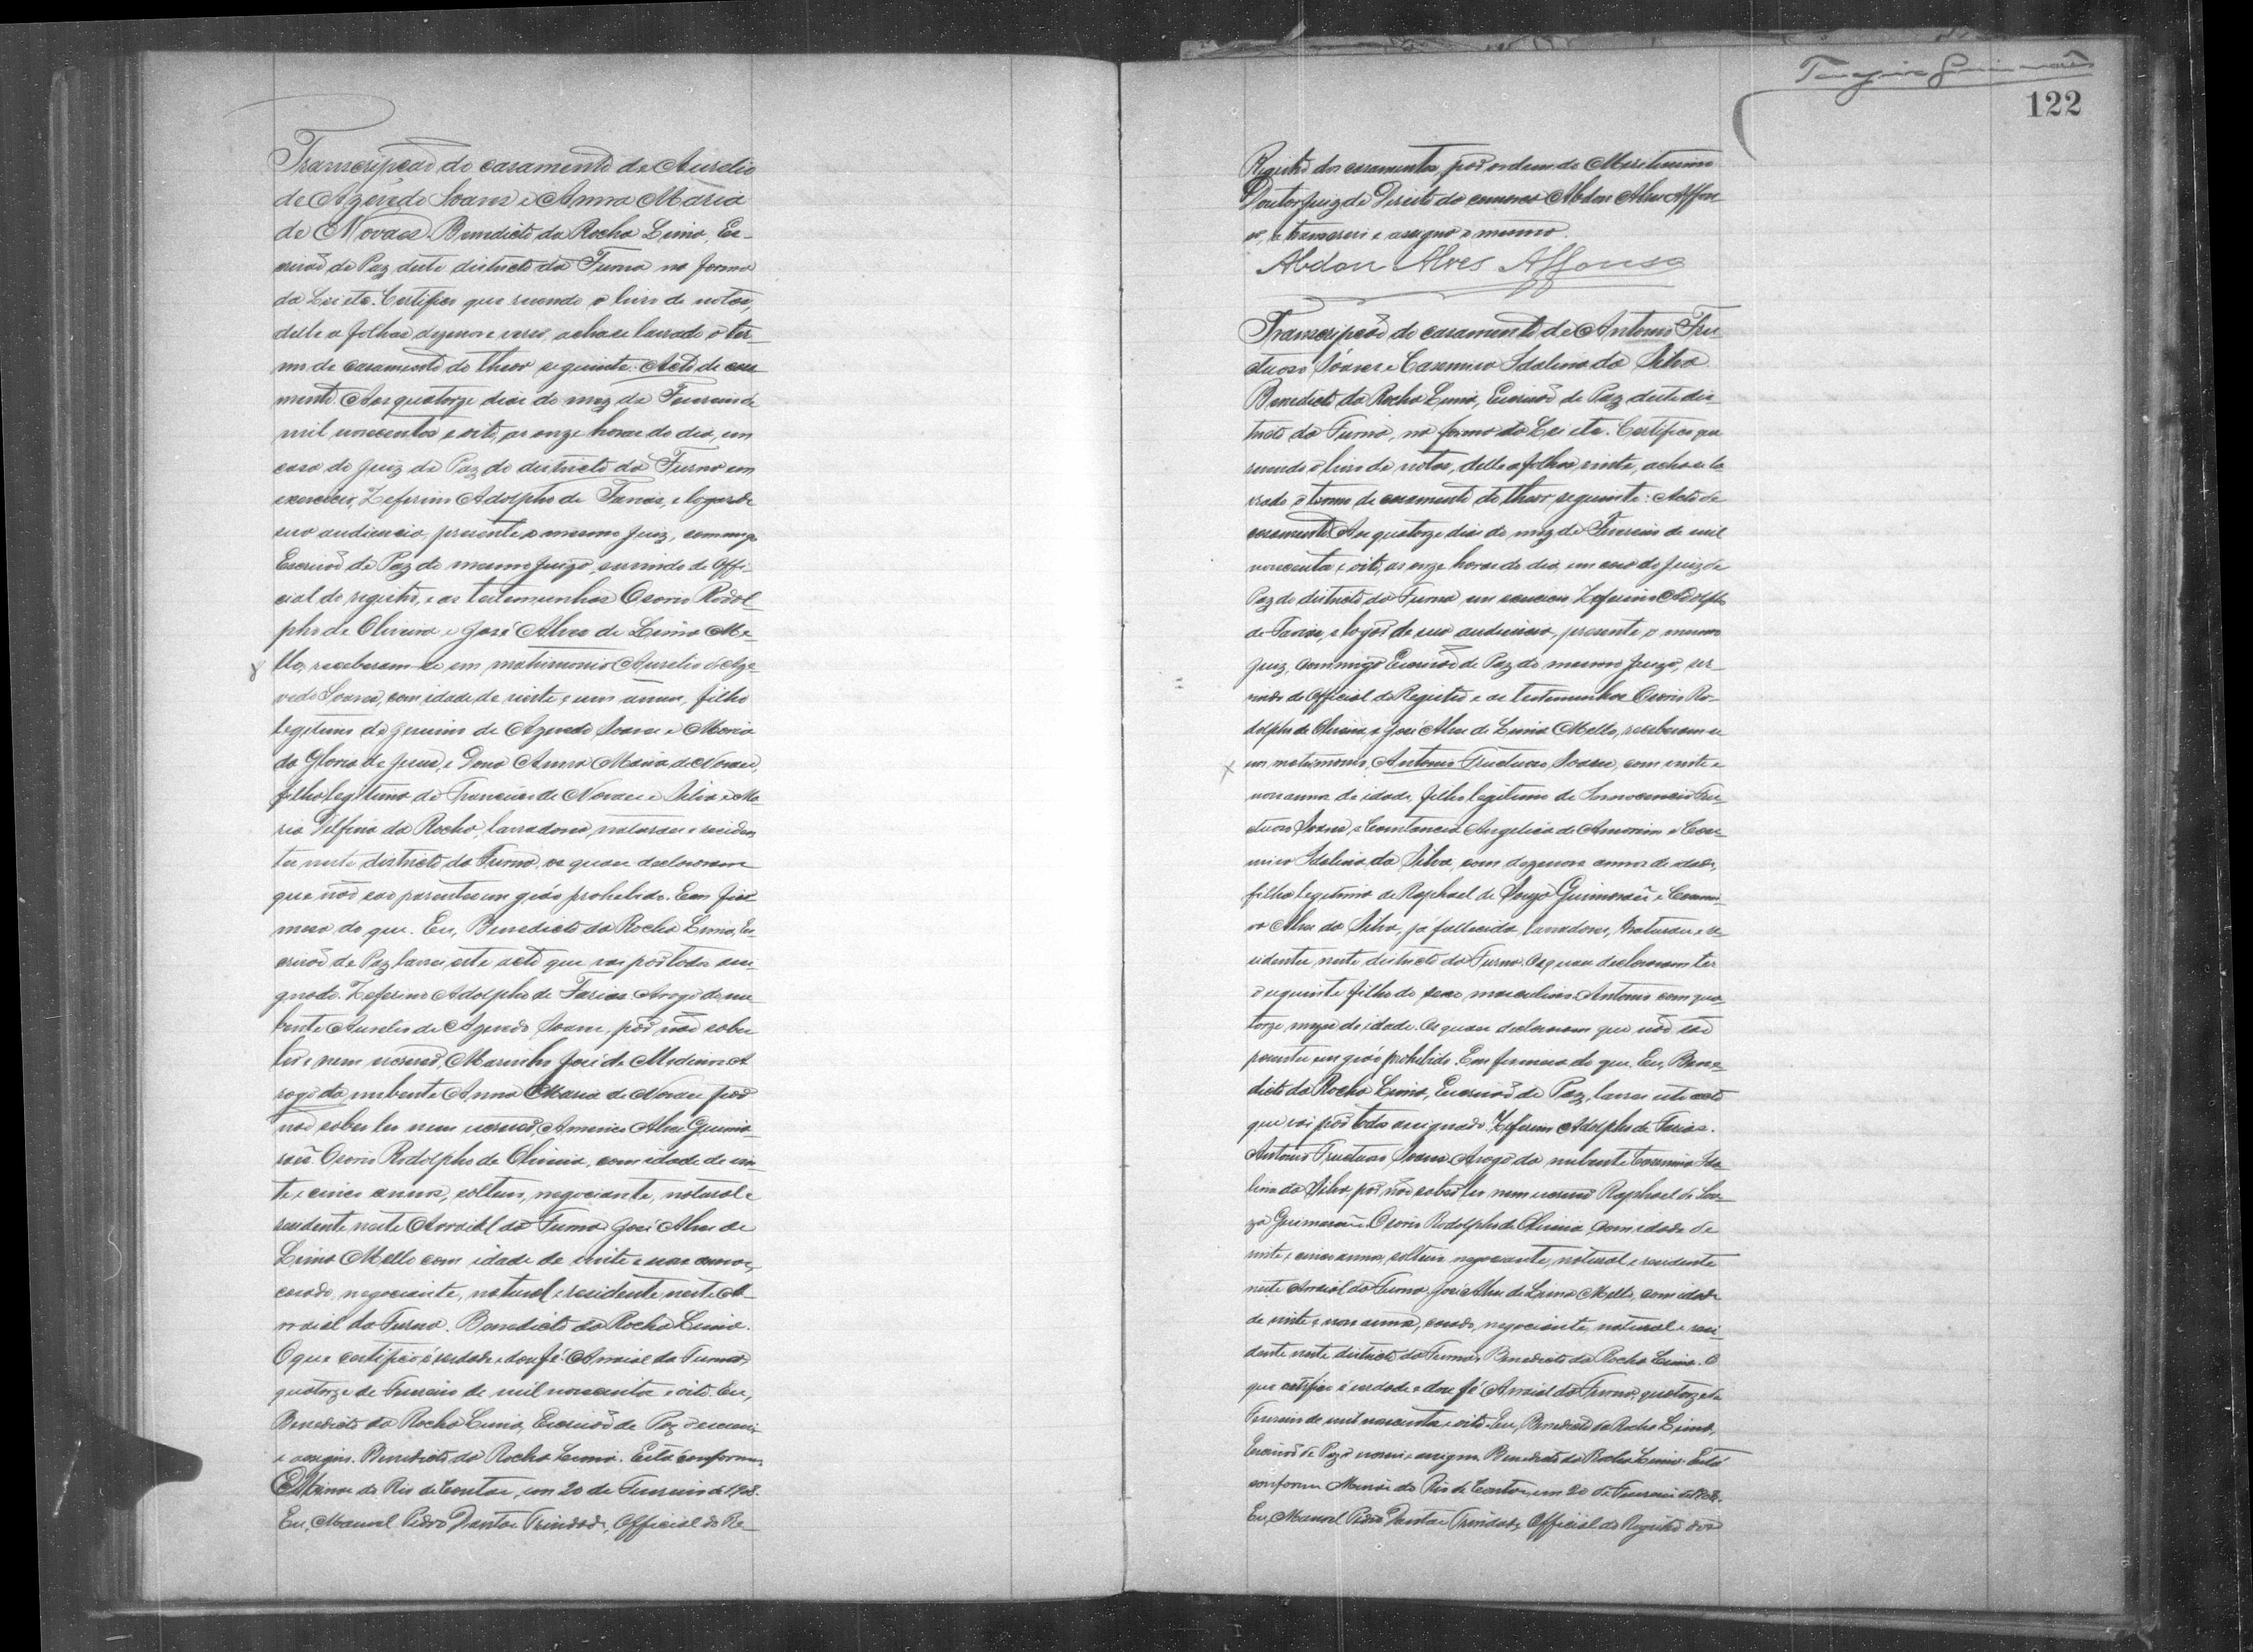 Transcripção do casamento de Aurelio
de Azevedo Soares e Anna Maria
de Novaes. Benedicto da Rocha Lima, Es-
crivão de Paz deste districto da Furna na forma
da Lei etc. Certifico que revendo o livro de notas,
delle a folhas dezenove verso, acha-se lavrado o ter-
mo de casamento do theor seguinte: Acto de casa
mento. Aos quatorze dias do mez de Fevereiro de
mil novecentos e oito, as onze horas do dia, em
casa do Juiz de Paz do districto da Furna em
exercicio, Zeferino Adolpho de Farias, e logar de
sua audiencia, presente o mesmo Juiz, commigo
Escrivão de Paz do mesmo Juizo, servindo de Offi-
cial do registro, e as testemunhas Osorio Rodol-
pho de Oliveira e José Alves de Lima Me-
llo, receberam-se em matrimonio Aurelio de Aze
vedo Soares, com idade de vinte e um annos, filho
legitimo de Jesuino de Azevedo Soares e Maria
da Gloria de Jesus, e Dona Anna Maria de Novaes,
filha legitima de Francisco de Novaes e Silva e Ma
ria Delfina da Rocha, lavradores, naturaes e residen
tes neste districto da Furna, os quaes declararam
que não são parentes em gráo prohibido. Em fir
meza do que. Eu, Benedicto da Rocha Lima, Es-
crivão de Paz lavrei este acto que vai por todos assi-
gnado. Zeferino Adolpho de Farias. Arogo do nu-
bente Aurelio de Azevedo Soares, por não saber
ler e nem escrever, Marinho José de Medeiros. A
rogo da nubente Anna Maria de Novaes por
não saber ler nem escrever, Americo Alves Guima-
rães. Osorio Rodolpho de Oliveira, com idade de vin-
te e cinco annos, solteiro, negociante, natural e
residente neste Arraial da Furna. José Alves de
Lima Mello com idade de vinte e nove annos,
casado, negociante, natural e residente neste Ar-
raial da Furna. Benedicto da Rocha Lima.
O que certifico é verdade e dou fé. Arraial da Furna,
quatorze de Fevereiro de mil novecentos e oito. Eu,
Benedicto da Rocha Lima, Escrivão de Paz o escrevi
e assigno. Benedicto da Rocha Lima. Está conforme.
Minas do Rio de Contas, em 20 de Fevereiro de 1908.
Eu, Manoel Pedro Dantas Trindade, Official do Re-
122
Registro dos casamentos, por ordem do Meritissimo
Doutor Juiz de Direito da comarca Abdon Alves Affon
so, o transcrevi e assigno o mesmo.
Abdon Alves Affonso
Transcripção do casamento de Antonio Fru-
ctuoso Soares e Casemira Idalina da Silva.
Benedicto da Rocha Lima, Escrivão de Paz deste dis-
tricto da Furna, na forma da Lei etc. Certifico que
revendo o livro de notas, delle a folhas vinte, acha-se la
vrado o termo de casamento do theor seguinte: Acto de
casamento. Aos quatorze dias do mez de Fevereiro de mil
novecentos e oito, as onze horas do dia, em casa do Juiz de
Paz do districto da Furna, em exercicio Zeferino Adolpho
de Farias, e logar de sua audiencia, presente o mesmo
Juiz, commigo Escrivão de Paz do mesmo Juizo, ser-
vindo de Official do Registro e as testemunhas Osorio Ro-
dolpho de Oliveira e José Alves de Lima Mello, receberam-se
em matrimonio, Antonio Fructuoso Soares, com vinte e
nove annos de idade, filho legitimo de Innocencio Fru-
ctuoso Soares, e Constancia Angelica de Amorim e Case-
mira Idalina da Silva, com dezenove annos de idade,
filha legitima de Raphael de Souza Guimarães e Casemi-
ra Alves da Silva, já fallecida, lavradores, naturaes e re
sidentes neste districto da Furna. Os quaes declararam ter
o seguinte filho do sexo masculino Antonio com qua-
torze mezes de idade. Os quaes declararam que não são
parentes em gráo prohibido. Em firmeza do que. Eu, Bene-
dicto da Rocha Lima, Escrivão de Paz, lavrei este acto
que vai por todos assignado. Zeferino Adolpho de Farias.
Antonio Fructuoso Soares. Arogo da nubente Casemira Ida-
lina da Silva por não saber ler nem escrever Raphael de Sou-
za Guimarães. Osorio Rodolpho de Oliveira, com idade de
vinte e cinco annos, solteiro negociante, natural e residente
neste Arraial da Furna, José Alves de Lima Mello, com idade
de vinte e nove annos, casado, negociante, natural e resi-
dente neste districto da Furna, Benedicto da Rocha Lima. O
que certifico é verdade e dou fé. Arraial da Furna, quatorze de
Fevereiro de mil novecentos e oito. Eu, Benedicto da Rocha Lima,
Escrivão de Paz o escrevi e assigno. Benedicto da Rocha Lima. Está
conforme. Minas do Rio de Contas, em 20 de Fevereiro de 1908.
Eu, Manoel Pedro Dantas Trindade, Official do Registro dos